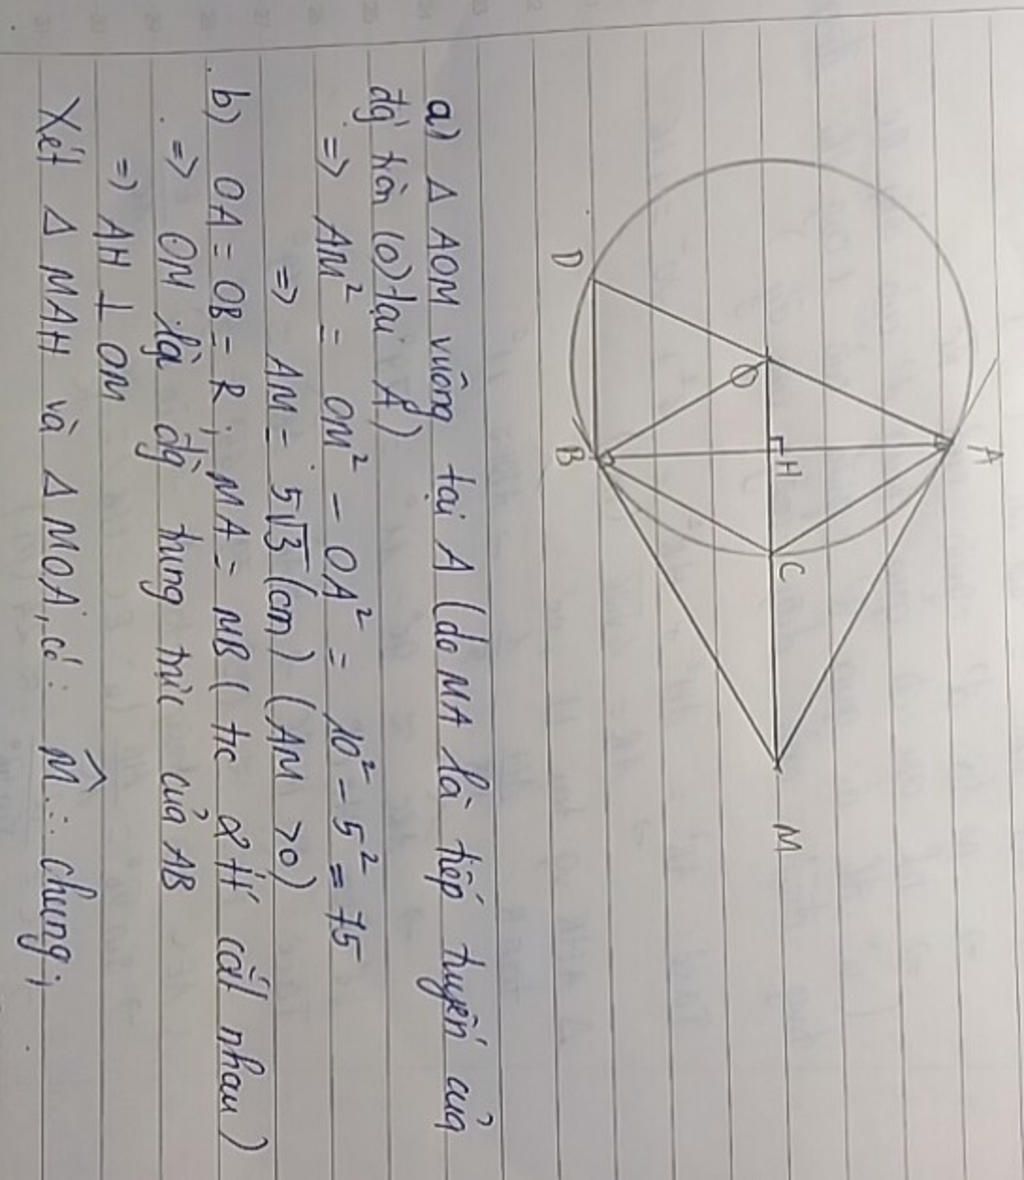 A
D
O
H
C
B
M
a) Δ AOM vuông tại A (do MA là tiếp tuyến của
đg tròn (O) tại A)
=> AM² = OM² - OA² = 10² - 5² = 75
=> AM = 5√3 (cm) (AM > 0)
b) OA = OB = R ; MA = MB ( tc 2 tt cắt nhau )
=> OM là đg trung trực của AB
=> AH ⊥ OM
Xét Δ MAH và Δ MOA, có: M̂ : chung ;